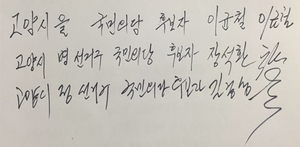 고양시 을 국민의당 후보자 이균철 이균철
고양시 병 선거구 국민의당 후보자 장석환
고양시 정 선거구 국민의당 후보자 길종성